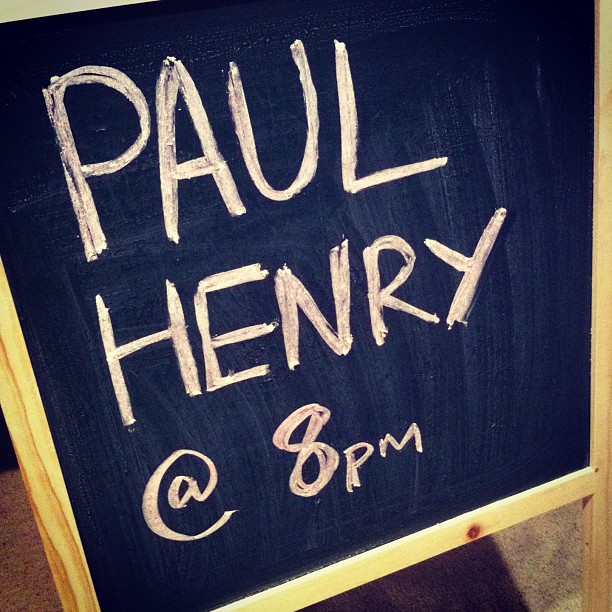 PAUL
HENRY
@ 8pm